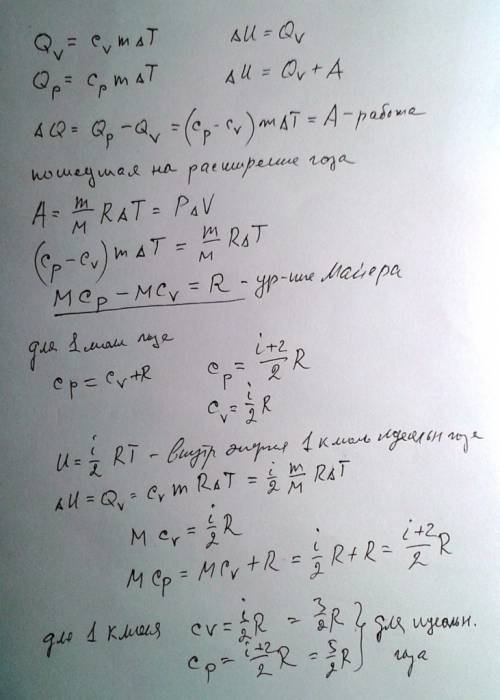 Qv = cv m ΔT    ΔU = Qv
Qp = cp m ΔT    ΔU = Qv + A
ΔQ = Qp - Qv = (cp - cv) m ΔT = A - работа
пошедшая на расширение газа
A = m/M RΔT = PΔV
(cp - cv) m ΔT = m/M RΔT
Mcp - Mcv = R - ур-ние Майера
для 1 моля газа
cp = cv + R    cp = (i+2)/2 R
cv = i/2 R
U = i/2 RT - внутр энергия 1 кмоль идеальн газа
ΔU = Qv = cv m RΔT = i/2 m/M RΔT
M cv = i/2 R
M cp = Mcv + R = i/2 R + R = (i+2)/2 R
для 1 кмоля cv = i/2 R = 3/2 R } для идеальн.
cp = (i+2)/2 R = 5/2 R } газа